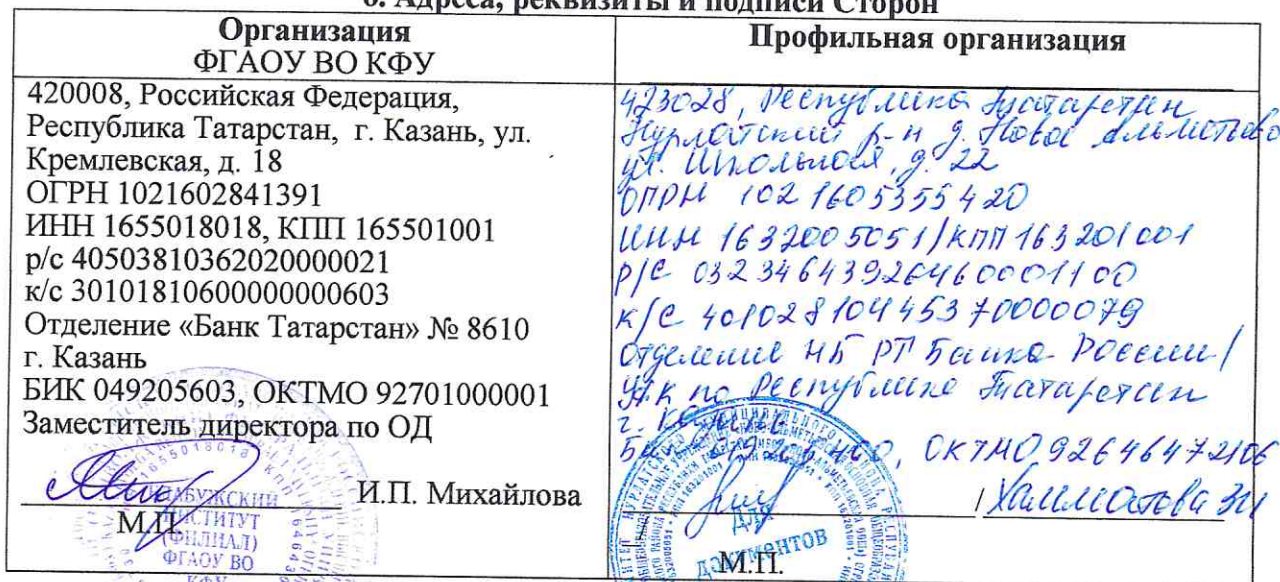 6. Адреса, реквизиты и подписи Сторон
Организация
ФГАОУ ВО КФУ
420008, Российская Федерация,
Республика Татарстан, г. Казань, ул.
Кремлевская, д. 18
ОГРН 1021602841391
ИНН 1655018018, КПП 165501001
р/с 40503810362020000021
к/с 30101810600000000603
Отделение «Банк Татарстан» № 8610
г. Казань
БИК 049205603, ОКТМО 92701000001
Заместитель директора по ОД
И.П. Михайлова
М.П.
ЕЛАБУЖСКИЙ
ИНСТИТУТ
(ФИЛИАЛ)
ФГАОУ ВО
КФУ
Профильная организация
423028, Республика Татарстан
Нурлатский р-н д. Новое Альметьево
ул. Школьная, д. 22
ОГРН 1021605355420
ИНН 1632005051/КПП 163201001
р/с 03234643926460001100
к/с 40102810445370000079
отделение НБ РТ Банка России/
УФК по Республике Татарстан
г. Казань
ОКТМО 92646472106
/
Для
документов
М.П.